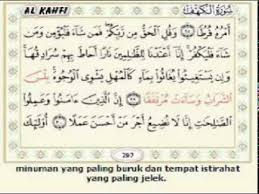 AL KAHFI سُورَةُ الْكَهْفِ
أَمْرُهُ فُرُطًا ٢٨ وَقُلِ الْحَقُّ مِن رَّبِّكُمْ فَمَن شَاءَ فَلْيُؤْمِن وَمَن
شَاءَ فَلْيَكْفُرْ إِنَّا أَعْتَدْنَا لِلظَّٰلِمِينَ نَارًا أَحَاطَ بِهِمْ سُرَادِقُهَا
وَإِن يَسْتَغِيثُوا يُغَاثُوا بِمَاءٍ كَالْمُهْلِ يَشْوِي الْوُجُوهَ بِئْسَ
الشَّرَابُ وَسَاءَتْ مُرْتَفَقًا ٢٩ إِنَّ الَّذِينَ ءَامَنُوا وَعَمِلُوا
الصَّٰلِحَٰتِ إِنَّا لَا نُضِيعُ أَجْرَ مَنْ أَحْسَنَ عَمَلًا ٣٠ أُولَٰئِكَ
297
minuman yang paling buruk dan tempat istirahat
yang paling jelek.